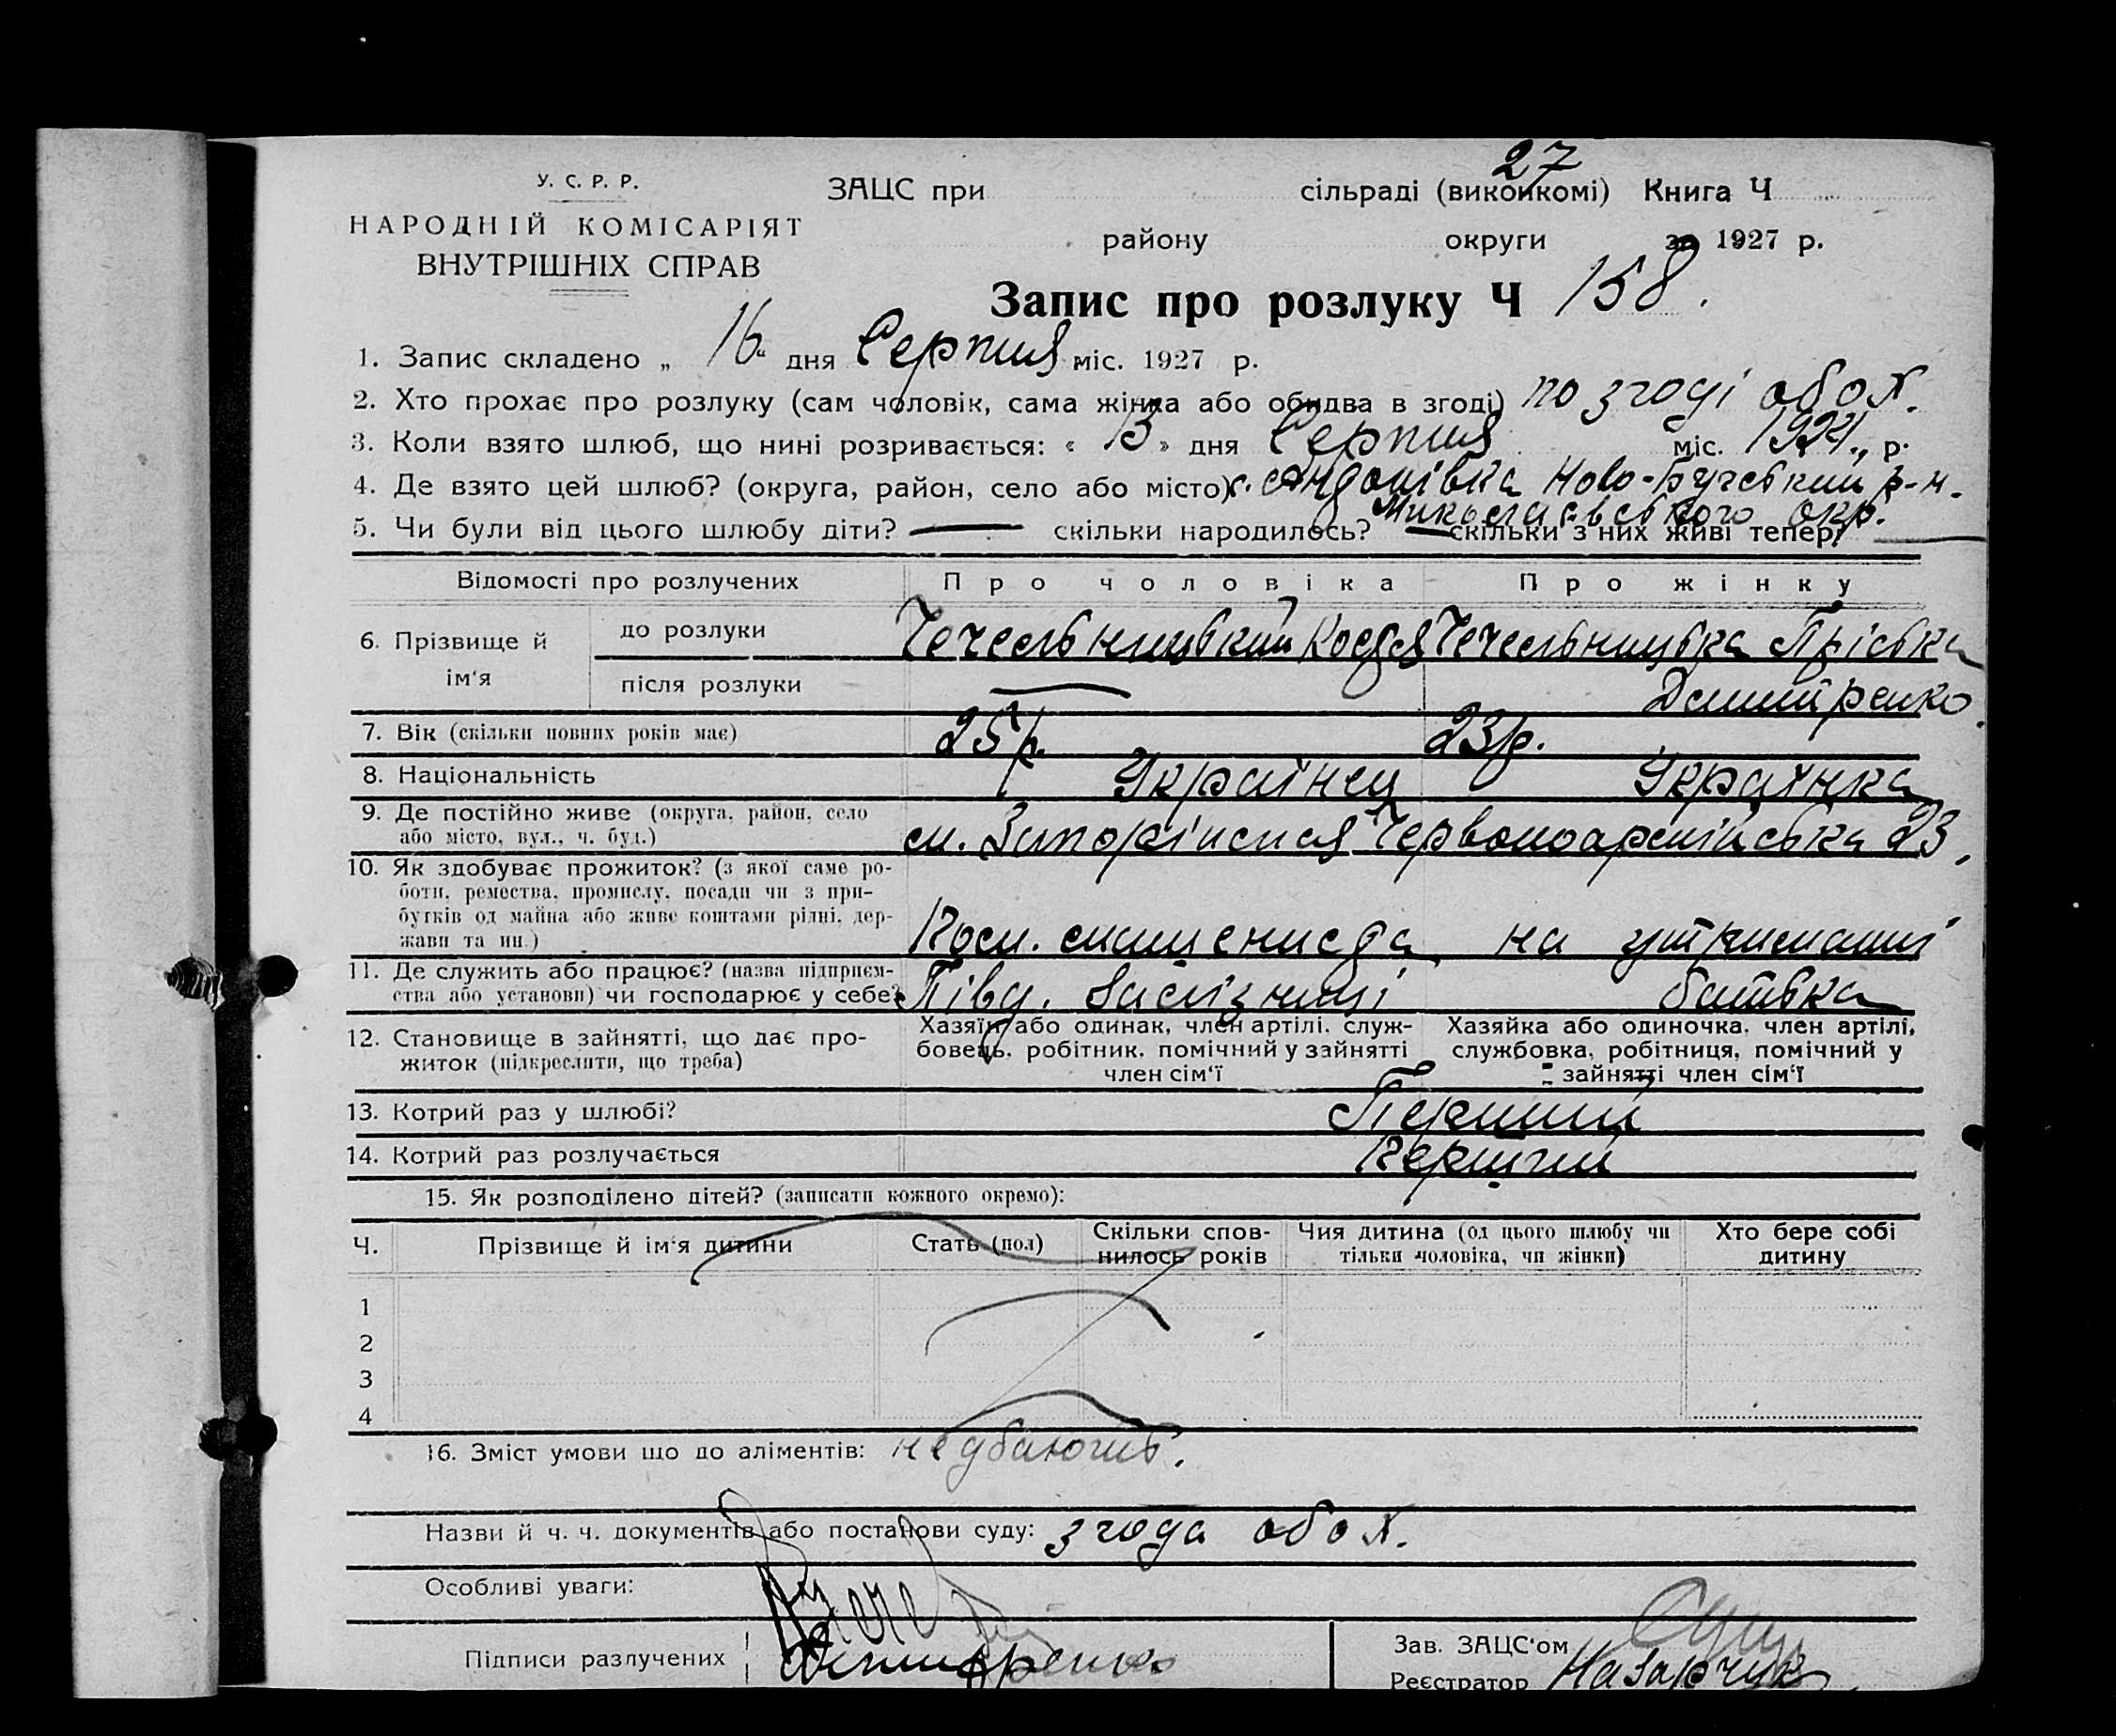 27
У. С. Р. Р.
ЗАЦС при сільраді (виконкомі) Книга Ч
НАРОДНІЙ КОМІСАРІЯТ
району округи за 1927 р.
ВНУТРІШНІХ СПРАВ
Запис про розлуку Ч 158.
1. Запис складено „ 16 “ дня Серпня міс. 1927 р.
2. Хто прохає про розлуку (сам чоловік, сама жінка або обидва в згоді) по згоді обох.
3. Коли взято шлюб, що нині розривається: « 13 » дня Серпня міс. 1924., р.
4. Де взято цей шлюб? (округа, район, село або місто) Ново-Бугський р-н.
Миколаєвського окр.
5. Чи були від цього шлюбу діти? — скільки народилось? — скільки з них живі тепер? —
Відомості про розлучених Про чоловіка Про жінку
6. Прізвище й ім'я до розлуки Чечельницький Чечельницька Пріська
після розлуки — Дмитренко.
7. Вік (скільки повних років має) 25 р. 23 р.
8. Національність Українец Українка
9. Де постійно живе (округа, район, село
або місто, вул., ч. буд.) м. Запоріжжя Червоноармійська 23,
10. Як здобуває прожиток? (з якої саме ро-
боти, ремества, промислу, посади чи з при-
бутків од майна або живе коштами рідні, дер-
жави та ин.) Пом. машиниста на утриманні
11. Де служить або працює? (назва підприєм-
ства або установи) чи господарює у себе? Півд. Залізниці батька
12. Становище в зайнятті, що дає про-
житок (підкреслити, що треба)
Хазяїн або одинак, член артілі, служ-
бовець, робітник, помічний у зайнятті
член сім'ї
Хазяйка або одиночка, член артілі,
службовка, робітниця, помічний у
зайнятті член сім'ї
13. Котрий раз у шлюбі? Перший
14. Котрий раз розлучається Перший
15. Як розподілено дітей? (записати кожного окремо):
Ч. Прізвище й ім'я дитини Стать (пол) Скільки спов-
нилось років Чия дитина (од цього шлюбу чи
тільки чоловіка, чи жінки) Хто бере собі
дитину
1
2
3
4
16. Зміст умови що до аліментів:
Назви й ч. ч. документів або постанови суду: згода обох.
Особливі уваги:
Підписи разлучених Дмитренко
Зав. ЗАЦС'ом
Реєстратор Назарчук